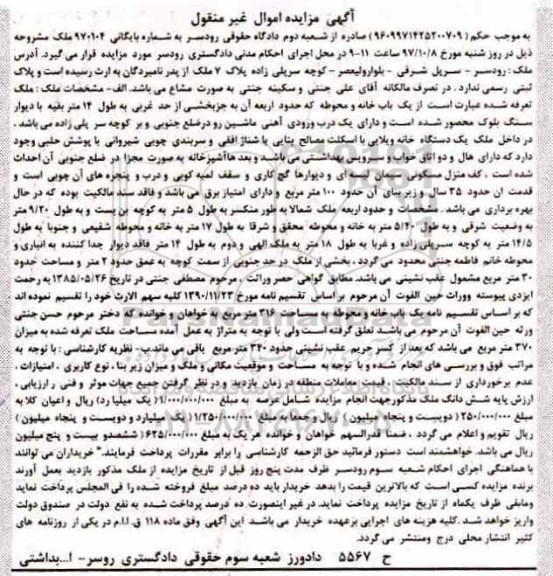 آگهی مزایده اموال غیر منقول
به موجب حکم (۹۶۰۹۹۷۱۴۲۵۲۰۰۷۰۹) صادره از شعبه دوم دادگاه حقوقی رودسر به شماره بایگانی ۹۷۰۱۰۴ ملک مشروحه
ذیل در روز شنبه مورخ ۹۷/۱۰/۸ ساعت ۱۱-۹ در محل اجرای احکام مدنی دادگستری رودسر مورد مزایده قرار می گیرد. آدرس
ملک : رودسر - سرپل شرقی - بلوارولیعصر - کوچه سرپلی زاده پلاک ۷ ملک از پدر نامبردگان به ارث رسیده است و پلاک
ثبتی رسمی ندارد . در تصرف مالکانه آقای علی جنتی و سکینه جنتی به صورت مشاع می باشد. الف- مشخصات ملک : ملک
تعرفه شده عبارت است از یک باب خانه و محوطه که حدود اربعه آن به جزبخشی از حد غربی به طول ۱۴ متر بقیه با دیوار
سنگ بلوک محصور شده است و دارای یک درب ورودی آهنی ماشین رو درضلع جنوبی و بر کوچه سر پلی زاده می باشد .
در داخل ملک یک دستگاه خانه ویلایی با اسکلت مصالح بنایی با شناژ افقی و سربندی چوبی شیروانی با پوشش حلبی وجود
دارد که دارای هال و دو اتاق خواب و سرویس بهداشتی می باشد و بعد ها آشپزخانه به صورت مجزا در ضلع جنوبی آن احداث
شده است . کف منزل مسکونی سیمان لیسه ای و دیوارها گچ کاری و سقف لمبه کوبی و درب و پنجره های آن چوبی است و
قدمت آن حدود ۳۵ سال و زیربنای آن حدود ۱۰۰ متر مربع و دارای امتیاز برق می باشد و فاقد سند مالکیت بوده که در حال
بهره برداری می باشد . مشخصات و حدود اربعه ملک شمالا به طور منکسر به طول ۵ متر به کوچه بن بست و به طول ۹/۲۰ متر
به وضعیت شرقی و به طول ۵/۴۰ متر به خانه و محوطه محقق و شرقا به طول ۱۷ متر به خانه و محوطه شفیعی و جنوبا به طول
۱۴/۵ متر به کوچه سرپلی زاده و غربا به طول ۱۸ متر به ملک الهی و دوم به طول ۱۴ متر فاقد دیوار جدا کننده به انباری و
محوطه خانم فاطمه جنتی محدود می گردد . بخشی از ملک در حد جنوبی از سمت کوچه به عمق حدود ۲ متر و مساحت حدود
۳۰ متر مربع مشمول عقب نشینی می باشد. مطابق گواهی حصر وراثت ، مرحوم مصطفی جنتی در تاریخ ۱۳۸۵/۰۵/۲۶ به رحمت
ایزدی پیوسته و وراث حین الفوت آن مرحوم بر اساس تقسیم نامه مورخ ۱۳۹۰/۱۱/۲۳ کلیه سهم الارث خود را تقسیم نموده اند
که بر اساس تقسیم نامه یک باب خانه و محوطه به مساحت ۳۱۶ متر مربع به خواهان و خوانده که دختر مرحوم حسن جنتی
ورثه حین الفوت آن مرحوم می باشد تعلق گرفته است ولی با توجه به متراژ به عمل آمده مساحت ملک تعرفه شده به میزان
۳۷۰ متر مربع می باشد که بعد از کسر حریم عقب نشینی حدود ۳۴۰ متر مربع باقی می ماند.ب- نظریه کارشناسی : با توجه به
مراتب فوق و بررسی های انجام شده و با توجه به مساحت و موقعیت مکانی و ملک و میزان زیر بنا ، نوع کاربری ، امتیازات ،
عدم برخورداری از سند مالکیت ، قیمت معاملات منطقه در زمان بازدید و در نظر گرفتن جمیع جهات موثر و فنی و ارزیابی ،
ارزش پایه شش دانگ ملک مذکور جهت انجام مزایده شامل عرصه به مبلغ ۱/۰۰۰/۰۰۰/۰۰۰ (یک میلیارد) ریال و اعیان کلا به
مبلغ ۲۵۰/۰۰۰/۰۰۰ (دویست و پنجاه میلیون) ریال و جمعا به مبلغ ۱/۲۵۰/۰۰۰/۰۰۰ (یک میلیارد و دویست و پنجاه میلیون)
ریال تقویم و اعلام می گردد . ضمنا قدرالسهم خواهان و خوانده هر یک به مبلغ ۶۲۵/۰۰۰/۰۰۰ (ششصدو بیست و پنج میلیون
ریال می باشد. خواهشمند است دستور فرمائید حق الزحمه کارشناسی را برابر مقررات پرداخت فرمایند." خریداران می توانند
با هماهنگی اجرای احکام شعبه سوم رودسر ظرف مدت پنج روز قبل از تاریخ مزایده از ملک مذکور بازدید بعمل آورند
برنده مزایده کسی است که بالاترین قیمت را بدهد خریدار باید ده درصد مبلغ فروخته شده را فی المجلس پرداخت نماید
ومابقی ظرف یکماه از تاریخ مزایده پرداخت نماید. در غیر اینصورت، ده درصد پرداخت شده به نفع دولت در صندوق دولت
واریز خواهد شد .کلیه هزینه های اجرایی برعهده خریدار می باشد این آگهی وفق ماده ۱۱۸ ق.ا.ا.م در یکی از روزنامه های
کثیر انتشار محلی درج ومنتشر می گردد.
ح ۵۵۶۷ دادورز شعبه سوم حقوقی دادگستری روسر- ا...بداشتی